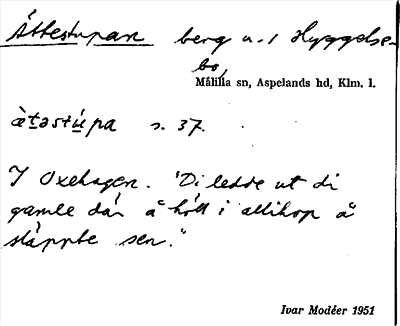 Ättestupan berg u. 1 Hyggelse-
bo,
Målilla sn, Aspelands hd, Klm. l.
ätəstúpa s. 37.
I Oxehagen. "Di ledde ut di
gamle dár å höll i allihop å
släppte sen."
Ivar Modéer 1951